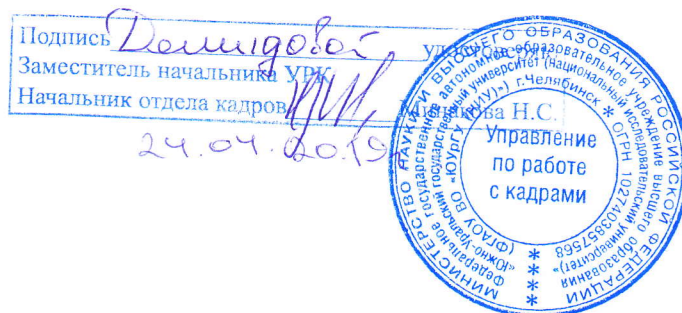 Подпись Демидовой удостоверяю
Заместитель начальника УРК
Начальник отдела кадров Минакова Н.С.
24.04.2019
МИНИСТЕРСТВО НАУКИ И ВЫСШЕГО ОБРАЗОВАНИЯ РОССИЙСКОЙ ФЕДЕРАЦИИ
Федеральное государственное автономное образовательное учреждение высшего образования
«Южно-Уральский государственный университет (национальный исследовательский университет)»
(ФГАОУ ВО «ЮУрГУ (НИУ)») г.Челябинск * ОГРН 1027403857568
Управление
по работе
с кадрами